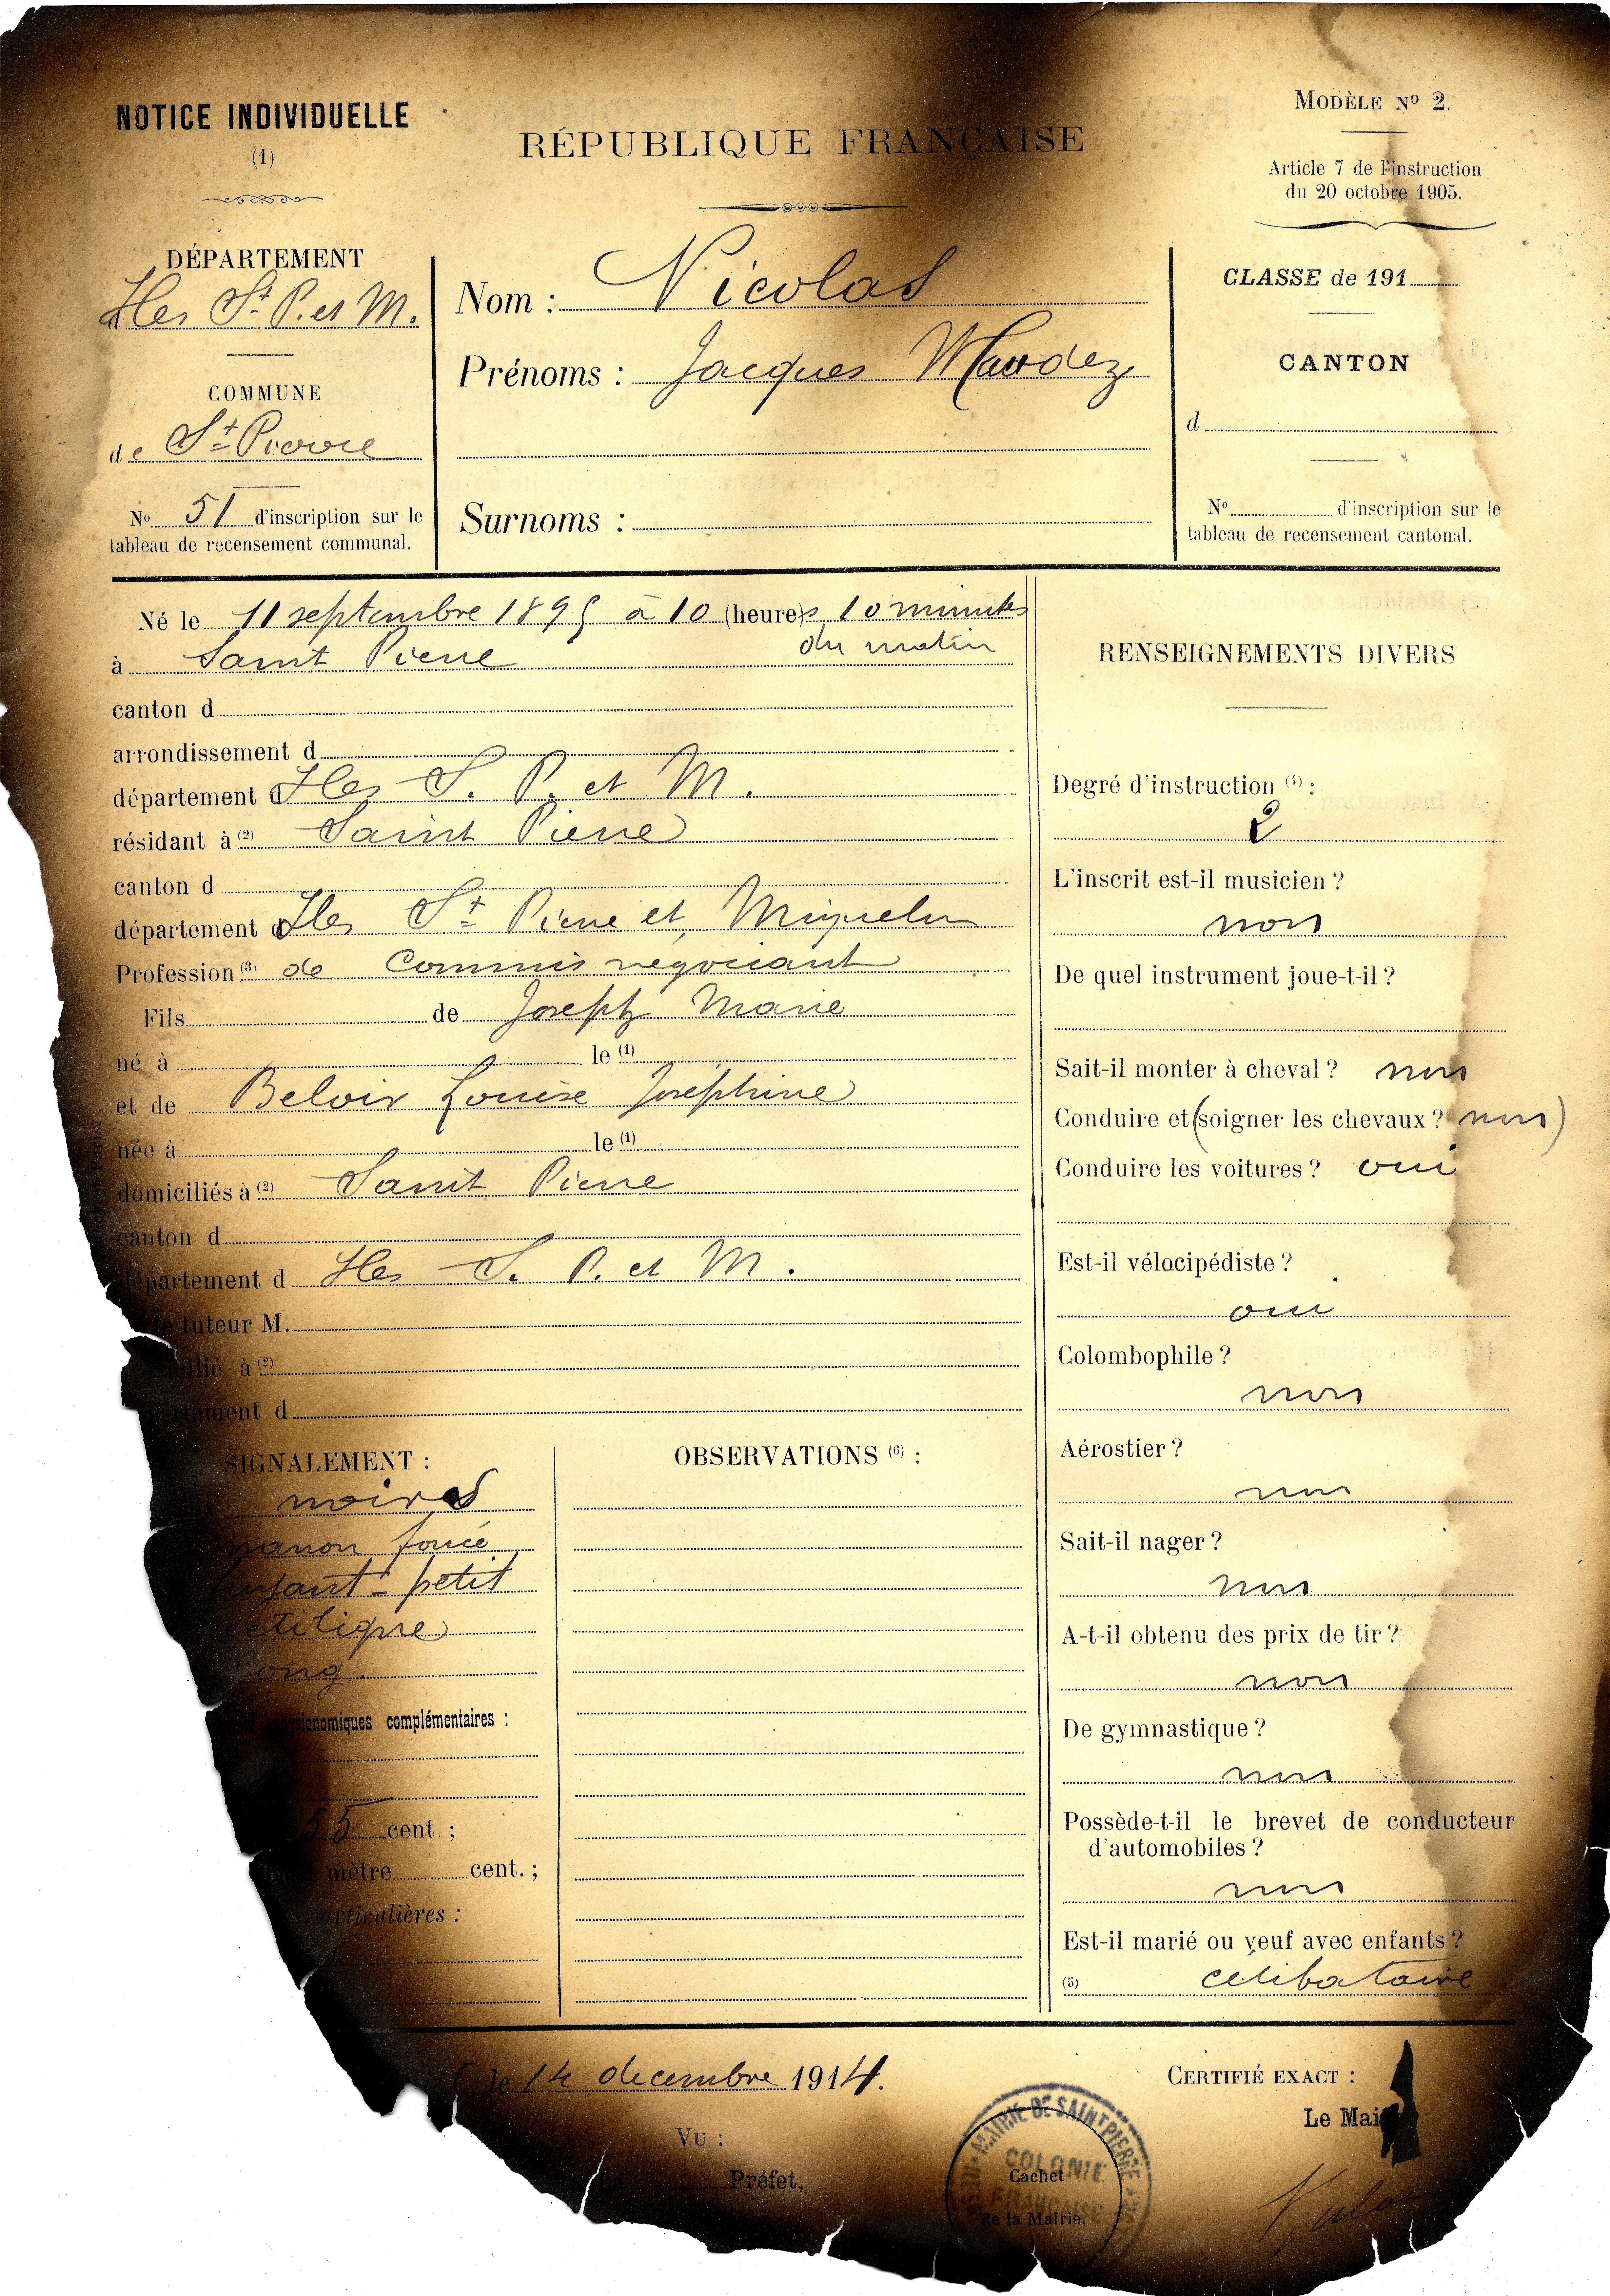 NOTICE INDIVIDUELLE
(1)
RÉPUBLIQUE FRANÇAISE
MODÈLE Nº 2.
Article 7 de l'instruction
du 20 octobre 1905.
DÉPARTEMENT
Iles St P. et M.
COMMUNE
de St Pierre
Nº 51 d'inscription sur le
tableau de recensement communal.
Nom : Nicolas
Prénoms : Jacques Maudez
Surnoms :
CLASSE de 191
CANTON
d
Nº d'inscription sur le
tableau de recensement cantonal.
Né le 11 septembre 1895 à 10 (heures 10 minutes
du matin
à Saint Pierre
canton d
arrondissement d
département d Iles S. P. et M.
résidant à (2) Saint Pierre
canton d
département d Iles St Pierre et Miquelon
Profession (3) de Commis négociant
Fils de Joseph Marie
né à le (1)
et de Beloir Louise Joséphine
née à le (1)
domiciliés à (2) Saint Pierre
canton d
département d Iles S. P. et M.
tuteur M.
à (2)
d
SIGNALEMENT :
noirs
foncé
fuyant - petit
rectiligne
long
complémentaires :
55 cent. ;
mètre cent. ;
particulières :
OBSERVATIONS (6) :
RENSEIGNEMENTS DIVERS
Degré d'instruction (4) :
2
L'inscrit est-il musicien ?
non
De quel instrument joue-t-il ?
Sait-il monter à cheval ? non
Conduire et (soigner les chevaux ? non)
Conduire les voitures ? oui
Est-il vélocipédiste ?
oui
Colombophile ?
non
Aérostier ?
non
Sait-il nager ?
non
A-t-il obtenu des prix de tir ?
non
De gymnastique ?
non
Possède-t-il le brevet de conducteur
d'automobiles ?
non
Est-il marié ou veuf avec enfants ?
(5) célibataire
le 14 decembre 1914.
VU :
Le Préfet,
MAIRIE DE SAINT PIERRE
COLONIE
FRANÇAISE
Cachet
de la Mairie.
CERTIFIÉ EXACT :
Le Mai